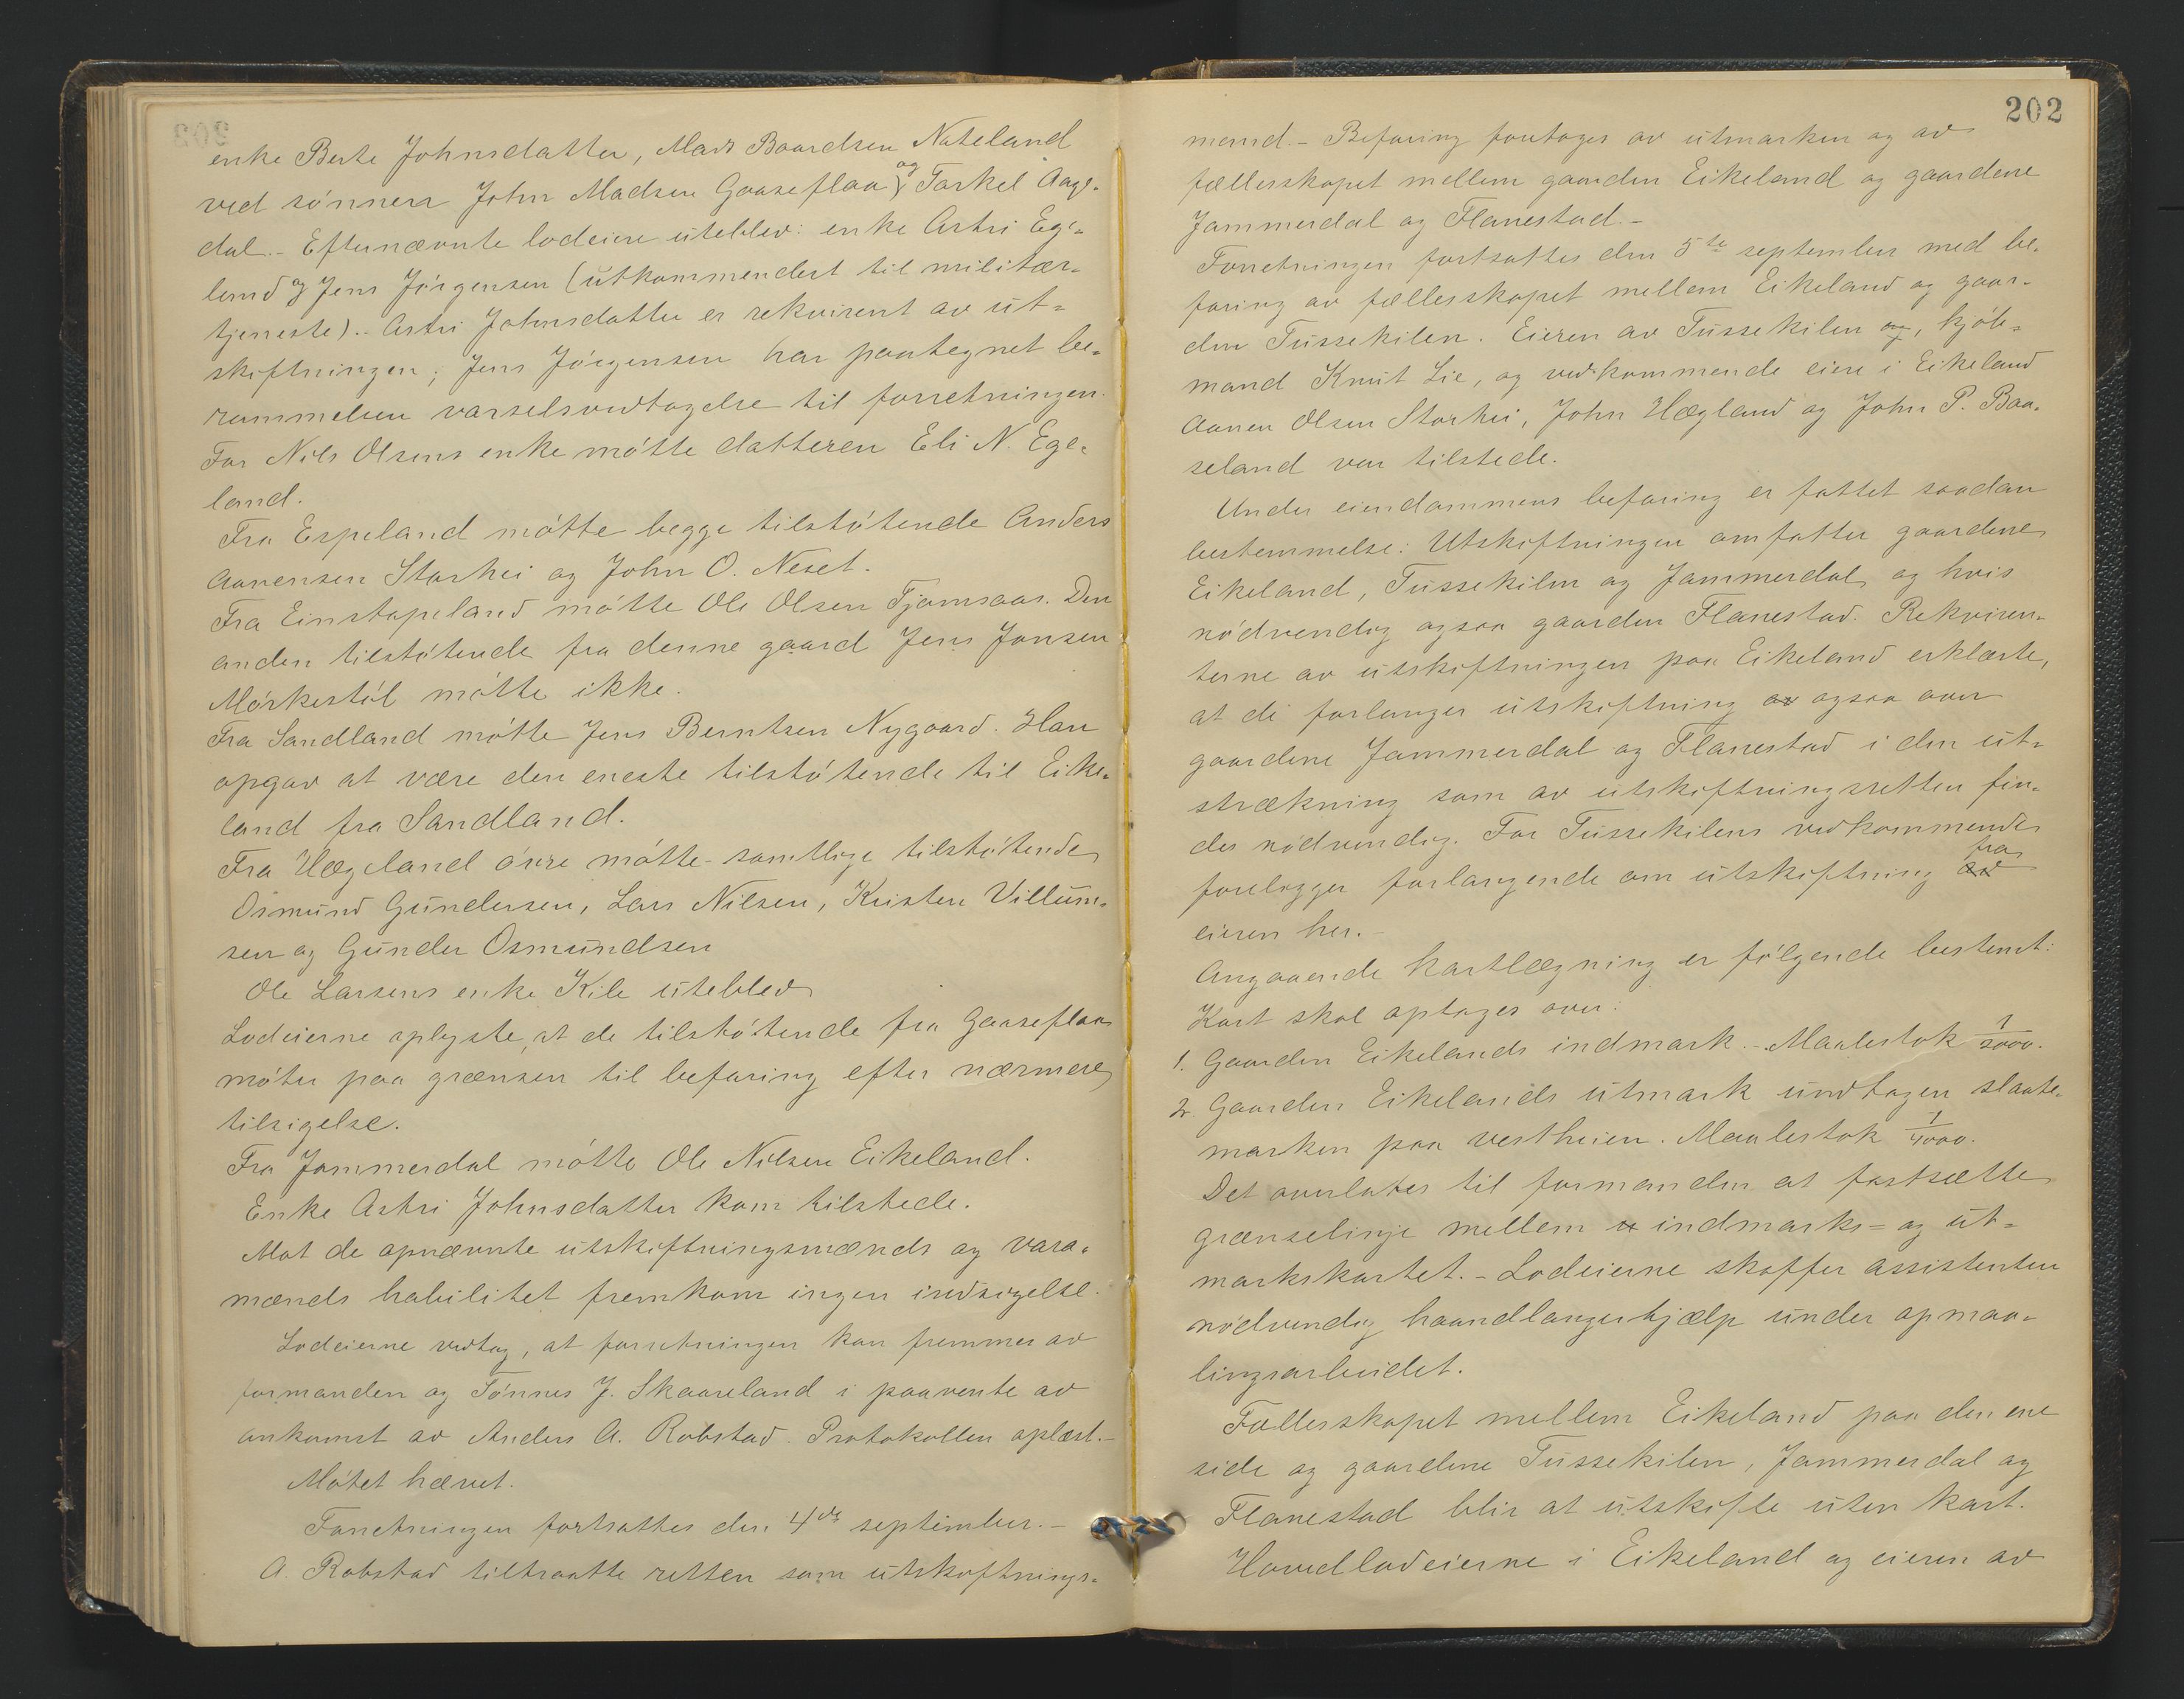 enke Berte Johnsdatter, Mads Baardsen Nateland
ved sönnen John Madsen Gaaseflaa og Tarkel Aage-
dal.- Efternævnte lodeiere uteblev: enke Astri Ege-
land og Jens Jörgensen (utkommendert til militær-
tjeneste).- Astri Johnsdatter er rekvirent av ut-
skiftningen; Jens Jörgensen har paategnet be-
rammelsen varselsvedtagelse til forretningen.
For Nils Olsens enke mötte datteren Eli N. Ege-
land.
Fra Espeland mötte begge tilstötende Anders
Aanensen Storhei og John O. Neset.
Fra Einstapeland mötte Ole Olsen Tjomsaas. Den
anden tilstötende fra denne gaard Jens Jonsen
Mörkestöl mötte ikke.
Fra Sandland mötte Jens Berntsen Nygaard. Han
opgav at være den eneste tilstötende til Eike-
land fra Sandland.
Fra Hægeland övre mötte samtlige tilstötende
Osmund Gundersen, Lars Nilsen, Kristen Villum-
sen og Gunder Osmundsen
Ole Larsens enke Kile uteblev
Lodeierne oplyste, at de tilstötende fra Gaaseflaa
möter paa grænsen til befaring efter nærmere
tilsigelse.
Fra Jammerdal mötte Ole Nilsen Eikeland.
Enke Astri Johnsdatter kom tilstede.
Mot de opnævnte utskiftningsmænds og vara-
mænds habilitet fremkom ingen indsigelse.
Lodeierne vedtog, at forretningen kan fremmes av
formanden og Tönnes J. Skaareland i paavente av
ankomst av Anders A. Robstad. Protokollen oplæst.-
Mötet hævet.
Forretningen fortsattes den 4de september.-
A. Robstad tiltraatte retten som utskiftnings-
202
mand.- Befaring foretoges av utmarken og av
fællesskapet mellem gaarden Eikeland og gaardene
Jammerdal og Flanestad.-
Forretningen fortsattes den 5te september med be-
faring av fællesskapet mellem Eikeland og gaar-
den Tussekilen. Eieren av Tussekilen og, kjöb-
mand Knut Lie, og vedkommende eiere i Eikeland
Aanen Olsen Storhei, John Hægland og John P. Baa-
seland var tilstede.
Under eiendommens befaring er fattet saadan
bestemmelse: Utskiftningen omfatter gaardene
Eikeland, Tussekilen og Jammerdal, og hvis
nödvendig ogsaa gaarden Flanestad. Rekviren-
terne av utskiftningen paa Eikeland erklærte,
at de forlanger utskiftning av ogsaa over
gaardene Jammerdal og Flanestad i den ut-
strækning som av utskiftningsretten fin-
des nödvendig. For Tussekilens vedkommende
foreligger forlangende om utskiftning av fra
eieren her.-
Angaaende kartlægning er fölgende bestemt:
Kart skal optages over:
1. Gaarden Eikelands indmark.- Maalestok 1/2000.
2. Gaarden Eikelands utmark undtagen slaatte-
marken paa vestheien. Maalestok 1/4000.
Det overlates til formanden at fastsætte
grænselinje mellem u indmarks- og ut-
markskartet.- Lodeierne skaffer assistenten
nödvendig haandlangerhjælp under opmaa-
lingsarbeidet.
Fællesskapet mellem Eikeland paa den ene
side og gaardene Tussekilen, Jammerdal og
Flanestad blir at utskifte uten kart.
Hovedlodeierne i Eikeland og eieren av